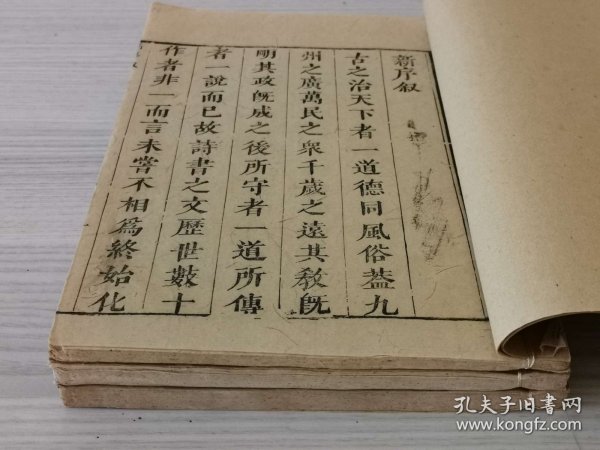 新序叙
古之治天下者一道德同風俗葢九
州之廣萬民之衆千歲之遠其敎旣
明其政旣成之後所守者一道所傳
者一說而已故詩書之文歷世數十
作者非一而言未嘗不相爲終始化
孔夫子旧书网
www.kongfz.com